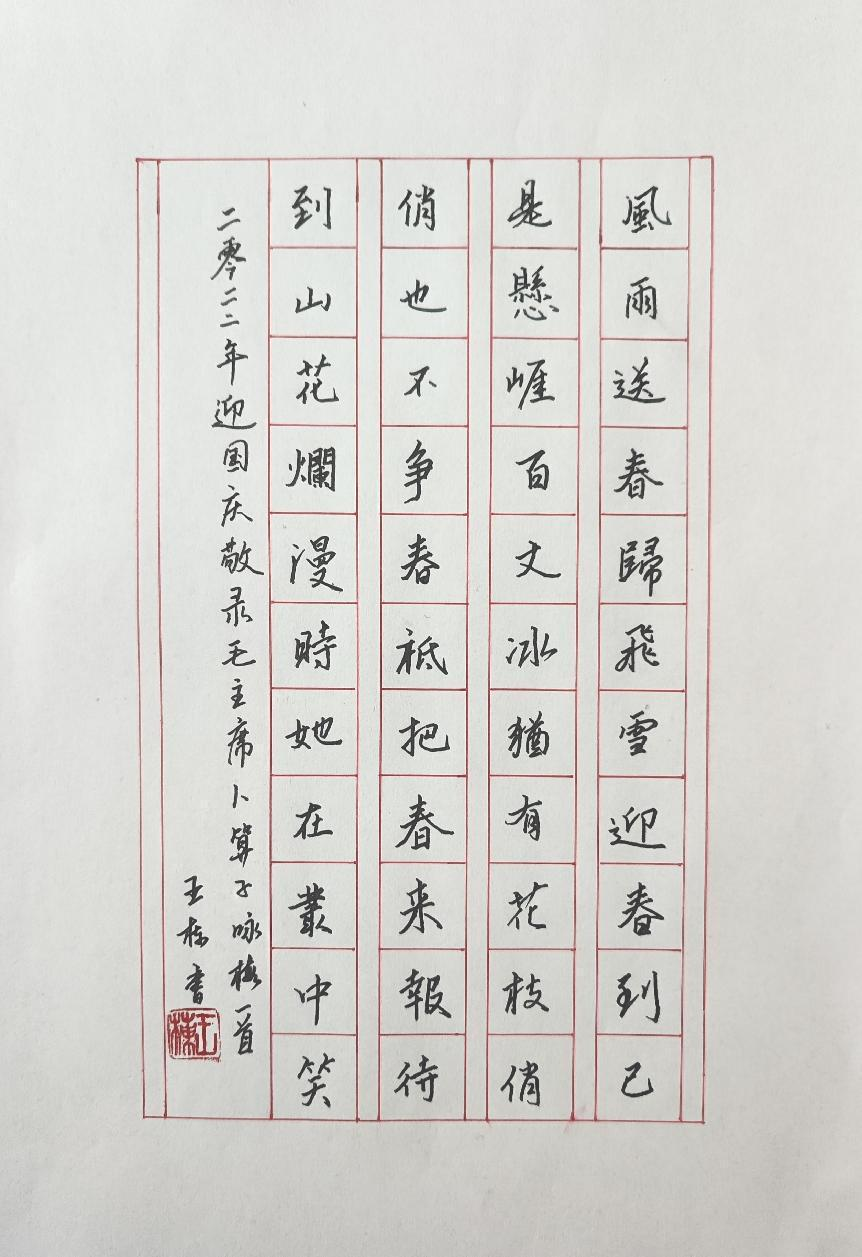 風雨送春歸飛雪迎春到已
是懸崖百丈冰猶有花枝俏
俏也不争春祗把春来報待
到山花爛漫時她在叢中笑
二零二二年迎国庆敬录毛主席卜算子咏梅一首
王栋书
王棟